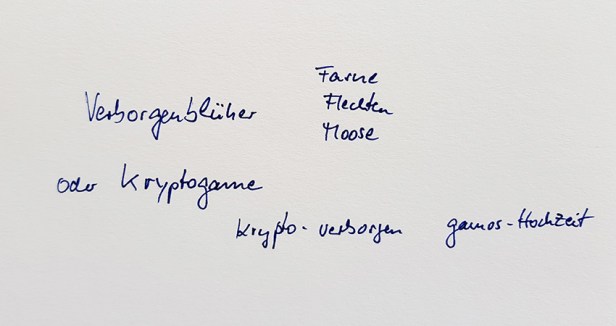 Verborgenblüher
Farne
Flechten
Moose
oder Kryptogame
krypto - verborgen gamos - Hochzeit